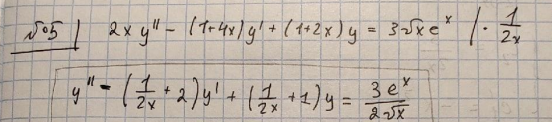 №5 | 2xy'' - (1+4x)y' + (1+2x)y = 3√x e^x | · 1/2x
y'' - (1/2x + 2)y' + (1/2x + 1)y = 3e^x/2√x